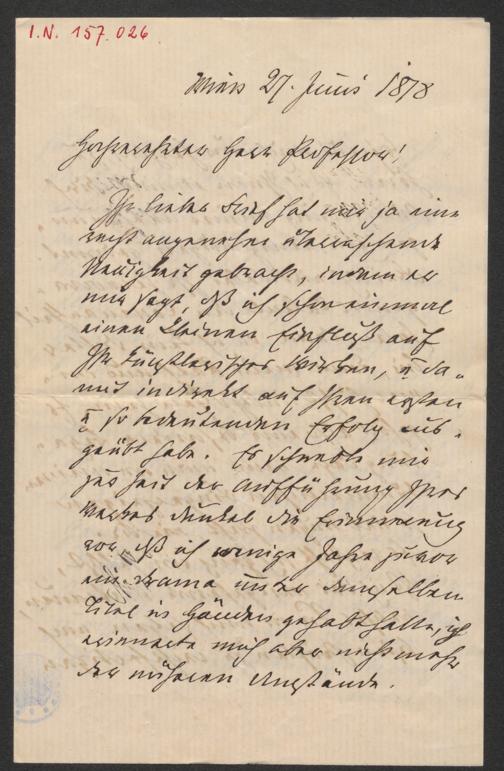 I.N. 157.026
Wien 27. Juni 1878
Hochverehrter Herr Professor!
Ihr lieber Brief hat mir ja eine
recht angenehm überraschende
Neuigkeit gebracht, indem er
mir sagt, daß ich schon einmal
einen kleinen Einfluß auf
Ihr künstlerisches Wirken, u da-
mit indirekt auf Ihren ersten
u so bedeutenden Erfolg aus-
geübt habe. Es schwebte mir
seit der Aufführung Ihres
Werkes dunkel die Erinnerung
vor, daß ich wenige Jahre zuvor
ein Drama unter demselben
Titel in Händen gehabt hatte, ich
erinnerte mich aber nicht mehr
der näheren Umstände.